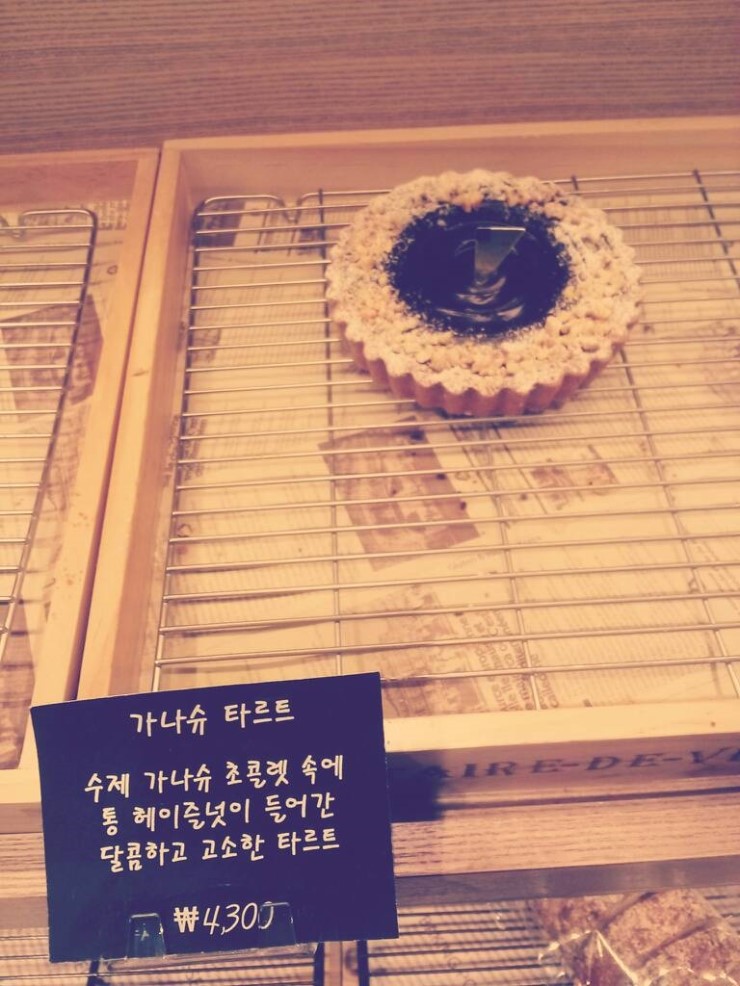 가나슈 타르트
수제 가나슈 초콜렛 속에
통 헤이즐넛이 들어간
달콤하고 고소한 타르트
₩4,300
AIRE-DE-V